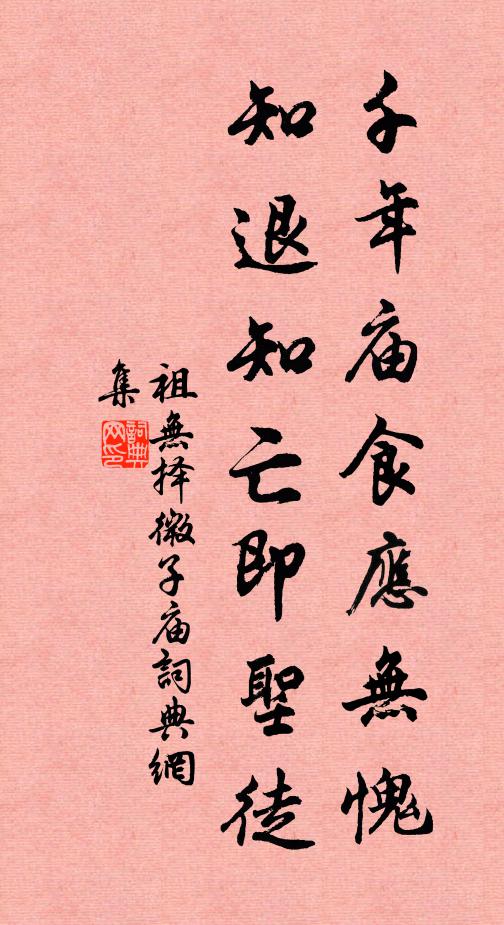 千年庙食應無愧
知退知亡即聖徒
祖無择微子庙詞典網
集
詞典
网印